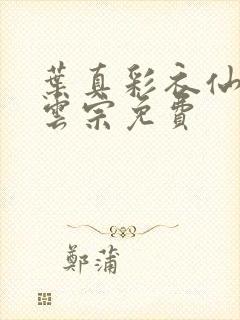 葉真彩衣仙
雲宗免費
鄭蒲